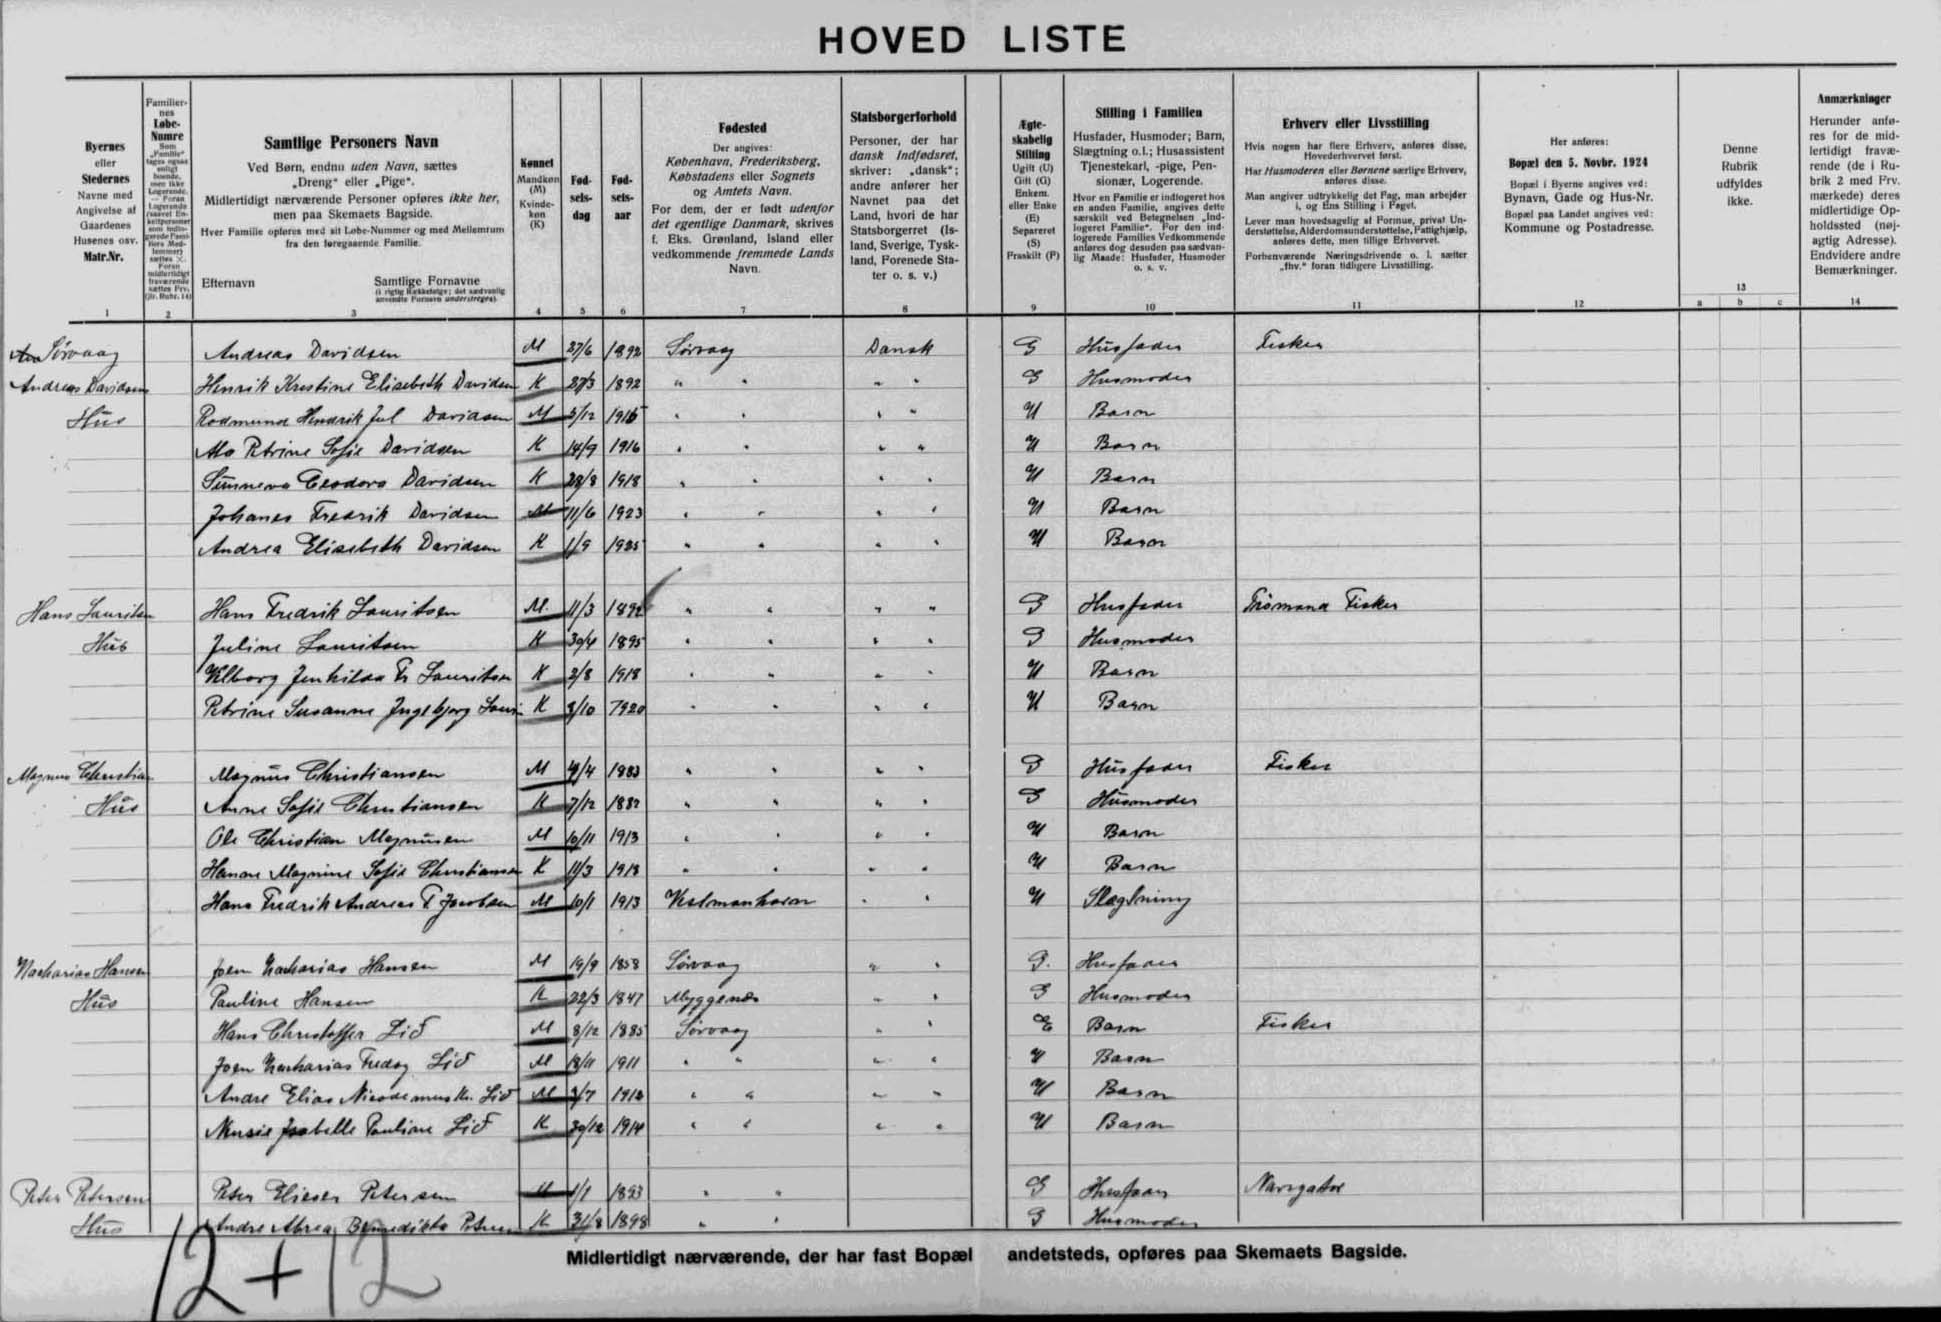 HOVED LISTE
Byernes
eller
Stedernes
Navne med
Angivelse af
Gaardenes
Husenes osv.
Matr.Nr.
1
Familier-
nes
Løbe-
Numre
2
Samtlige Personers Navn
Ved Børn, endnu uden Navn, sættes
„Dreng" eller „Pige".
Midlertidigt nærværende Personer opføres ikke her,
men paa Skemaets Bagside.
Hver Familie opføres med sit Løbe-Nummer og med Mellemrum
fra den foregaaende Familie.
Efternavn Samtlige Fornavne
(i rigtig Rækkefølge; det sædvanlig
anvendte Fornavn understreges).
3
Kønnet
Mandkøn
(M)
Kvinde-
køn
(K)
4
Fød-
sels-
dag
5
Fød-
sels-
aar
6
Fødested
Der angives:
København, Frederiksberg,
Købstadens eller Sognets
og Amtets Navn.
For dem, der er født udenfor
det egentlige Danmark, skrives
f. Eks. Grønland, Island eller
vedkommende fremmede Lands
Navn.
7
Statsborgerforhold
Personer, der har
dansk Indfødsret,
skriver: „dansk";
andre anfører her
Navnet paa det
Land, hvori de har
Statsborgerret (Is-
land, Sverige, Tysk-
land, Forenede Sta-
ter o. s. v.)
8
Ægte-
skabelig
Stilling
Ugift (U)
Gift (G)
Enkem.
eller Enke
(E)
Separeret
(S)
Fraskilt (F)
9
Stilling i Familien
Husfader, Husmoder; Barn,
Slægtning o.l.; Husassistent
Tjenestekarl, -pige, Pen-
sionær, Logerende.
Hvor en Familie er indlogeret hos
en anden Familie, angives dette
særskilt ved Betegnelsen „Ind-
logeret Familie". For den ind-
logerede Families Vedkommende
anføres dog desuden paa sædvan-
lig Maade: Husfader, Husmoder
o. s. v.
10
Erhverv eller Livsstilling
Hvis nogen har flere Erhverv, anføres disse,
Hovederhvervet først.
Har Husmoderen eller Børnene særlige Erhverv,
anføres disse.
Man angiver udtrykkelig det Fag, man arbejder
i, og Ens Stilling i Faget.
Lever man hovedsagelig af Formue, privat Un-
derstøttelse, Alderdomsunderstøttelse, Fattighjælp,
anføres dette, men tillige Erhvervet.
Forhenværende Næringsdrivende o. l. sætter
„fhv." foran tidligere Livsstilling.
11
Her anføres:
Bopæl den 5. Novbr. 1924
Bopæl i Byerne angives ved:
Bynavn, Gade og Hus-Nr.
Bopæl paa Landet angives ved:
Kommune og Postadresse.
12
Denne
Rubrik
udfyldes
ikke.
13
a b c
Anmærkninger
Herunder anfø-
res for de mid-
lertidigt fravæ-
rende (de i Ru-
brik 2 med Frv.
mærkede) deres
midlertidige Op-
holdssted (nøj-
agtig Adresse).
Endvidere andre
Bemærkninger.
14
Sørvaag Andreas Davidsen M 27/6 1892 Sørvaag Dansk G Husfader Fisker
Andreas Davidsens Henrik Kristine Elisabeth Davidsen K 27/3 1892 " " " " G Husmoder
Hus Rodmund Hendrik Jul Davidsen M 5/12 1915 " " " " U Barn
Petrine Sofie Davidsen K 14/9 1916 " " " " U Barn
Sunneva Davidsen K 28/8 1918 " " " " U Barn
Johanes Fredrik Davidsen M 11/6 1923 " " " " U Barn
Andrea Elisabeth Davidsen K 1/9 1925 " " " " U Barn
Hans Lauritsen Hans Fredrik Lauritsen M. 11/3 1892 " " " " G Husfader Fisker
Hus Juline Lauritsen K 30/4 1895 " " " " G Husmoder
Lauritsen K 2/8 1918 " " " " U Barn
Petrine Susanne Ingebjørg K 3/10 1920 " " " " U Barn
Magnus Christian Magnus Christiansen M 4/4 1883 " " " " G Husfader Fisker
Hus Anne Sofie Christiansen K 7/12 1882 " " " " G Husmoder
Ole Christian Magnusen M 10/11 1913 " " " " U Barn
Hanne Magnine Sofie Christiansen K 11/3 1918 " " " " U Barn
Hans Fredrik Andreas F Jacobsen M 10/1 1913 Vestmanhavn " " U Slægtning
Hansen Joen Zacharias Hansen M 19/9 1858 Sørvaag " G. Husfader
Hus Pauline Hansen K 22/3 1847 Myggenæs " " G Husmoder
Hans Christoffer Lið M 8/12 1885 Sørvaag " " E Barn Fisker
Joen Zacharias Lið M 18/11 1911 " " " " U Barn
Andre Elias Nicodemus Kr. Lið M 3/7 1912 " " " " U Barn
Isabelle Pauline Lið K 30/12 1914 " " " " U Barn
Peter Petersen Peter Elieser Petersen M 1/1 1893 " " G Husfader Navigatør
Hus K 31/8 1898 " " G Husmoder
12+12
Midlertidigt nærværende, der har fast Bopæl andetsteds, opføres paa Skemaets Bagside.